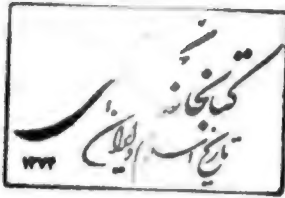 کتابخانه
تاریخ اسلام و ایران
۱۳۷۴